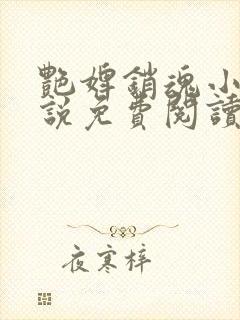 艷婢銷魂小
說免費閱讀
夜寒梓